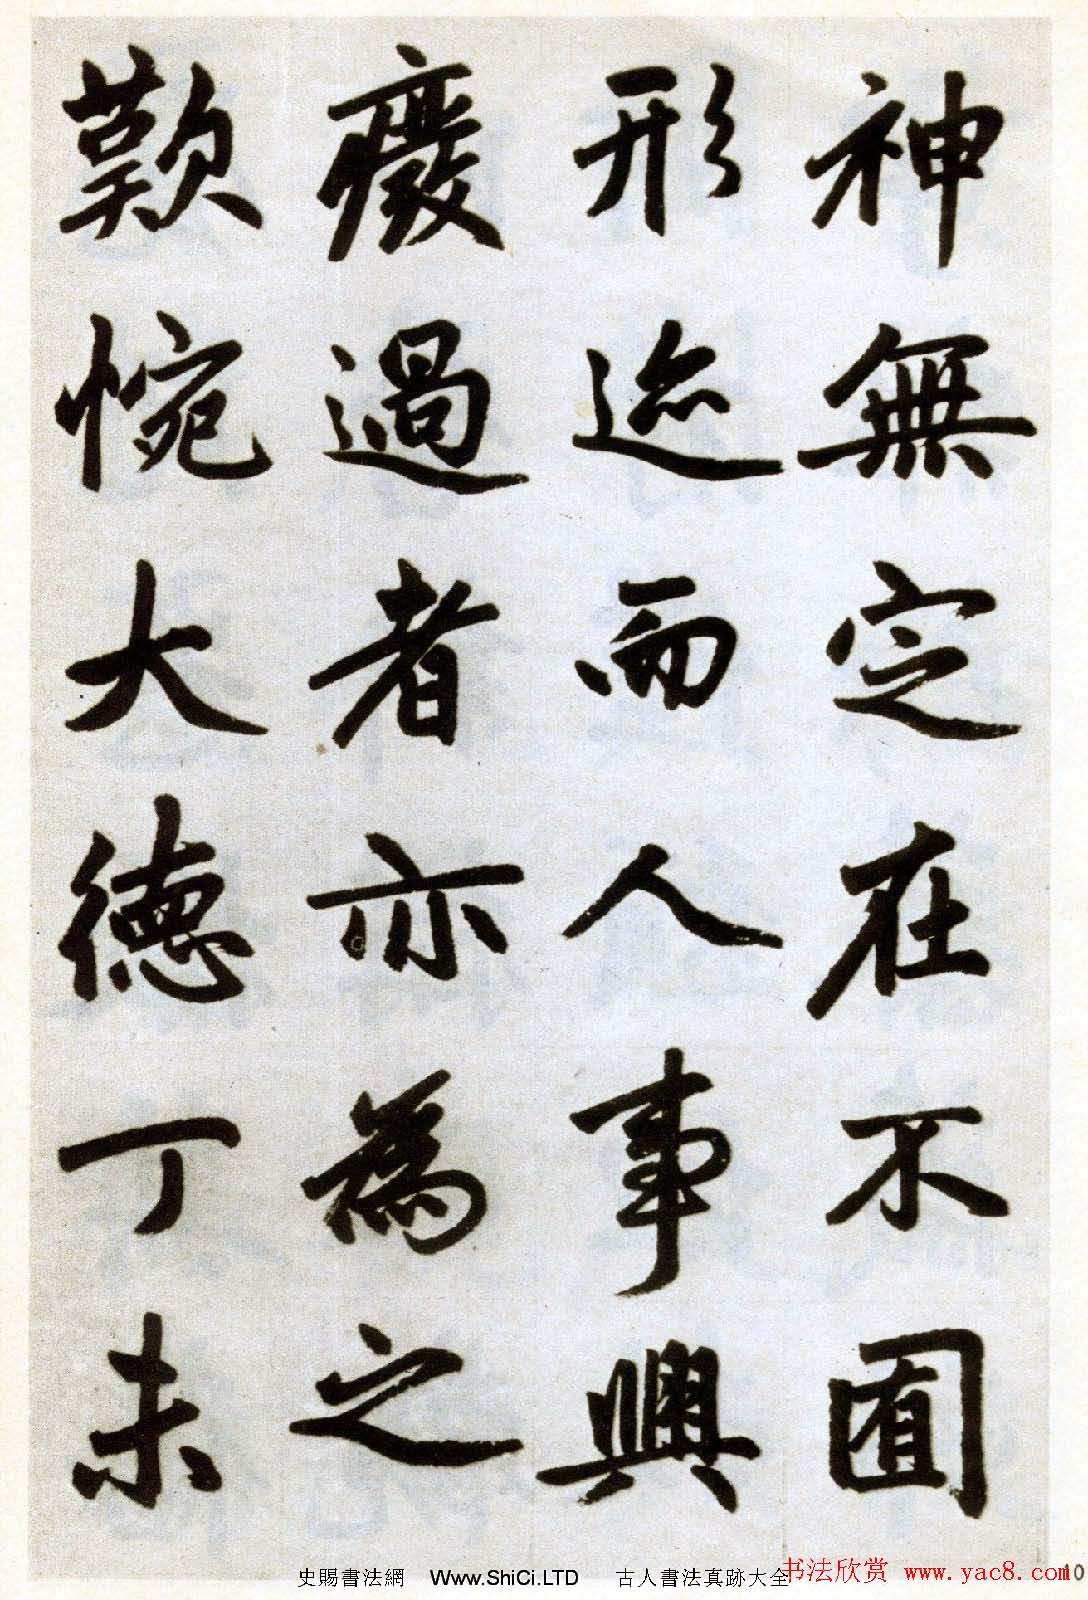 神無定在不囿
形迹而人事興
癈過者亦為之
歎惋大德丁未
史賜書法網 Www.ShiCi.LTD 古人書法真跡大全
书法欣赏 www.yac8.com
10